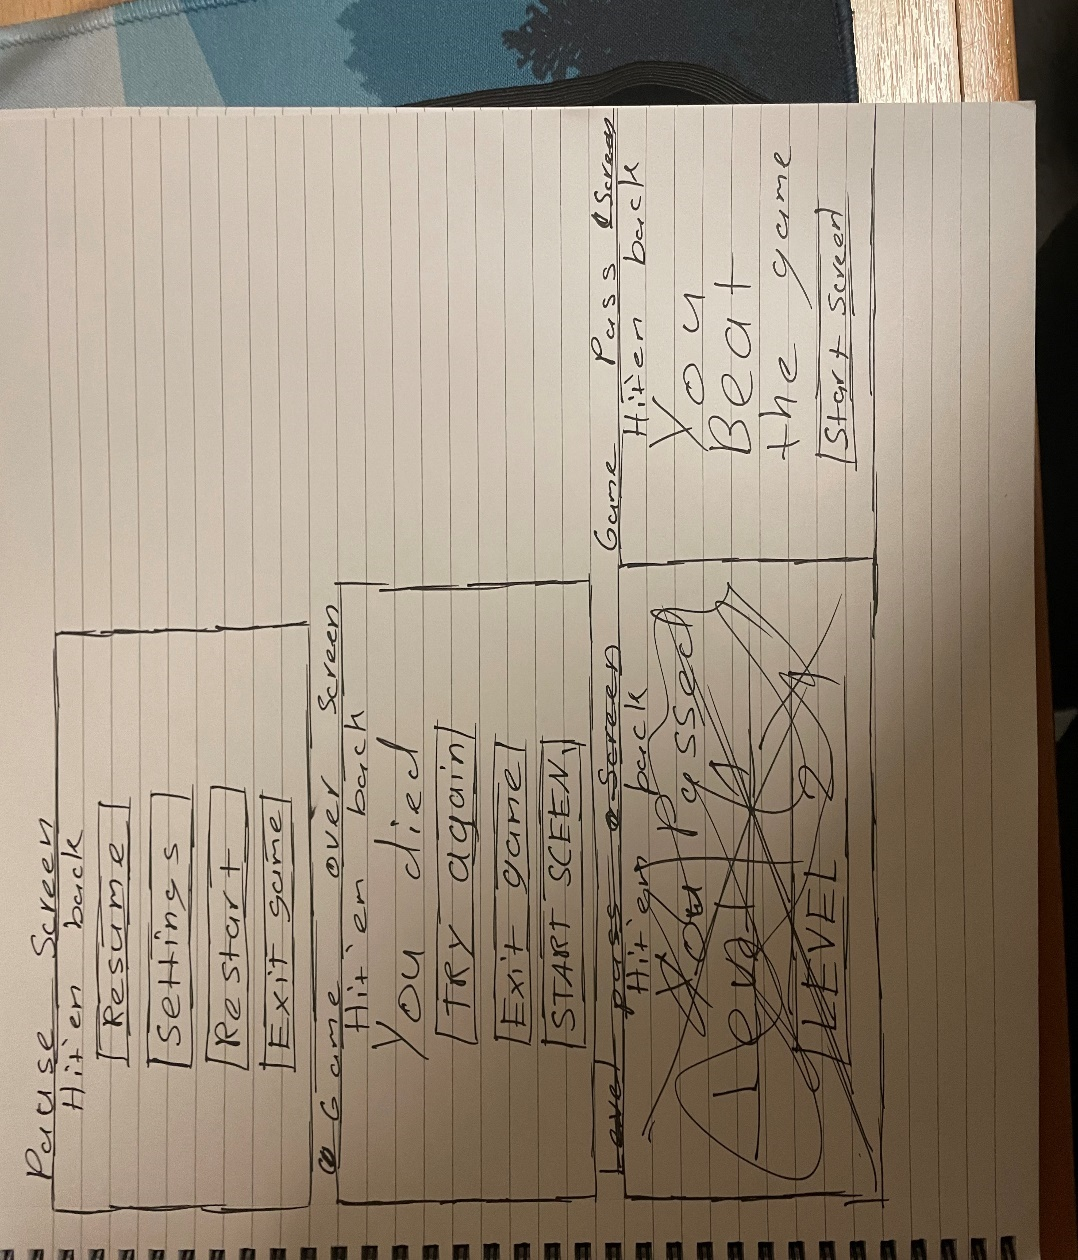 Pause Screen
Hit'en back
Resume
Settings
Restart
Exit game
Game over Screen
Hit'en back
You died
TRY again
Exit game
START SCEEN
Level pass Screen
Hit'en back
You passed
Level 1
LEVEL 2
Game Pass Screen
Hit'en back
You
Beat
the game
Start Screen